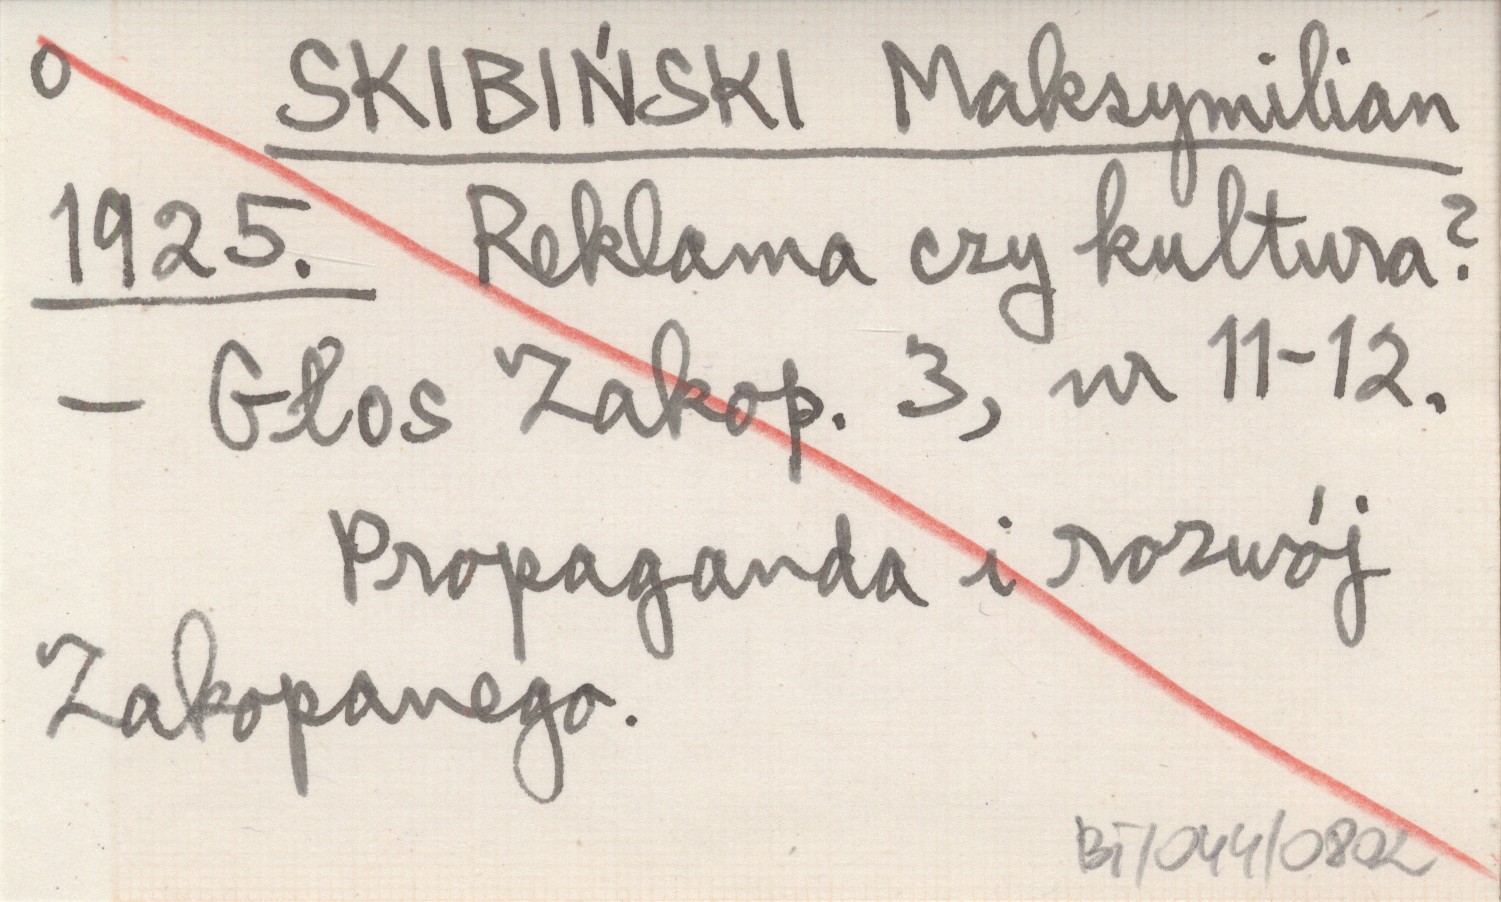 o SKIBIŃSKI Maksymilian
1925. Reklama czy kultura?
– Głos Zakop. 3, nr 11-12.
Propaganda i rozwój
Zakopanego.
BT/044/0802